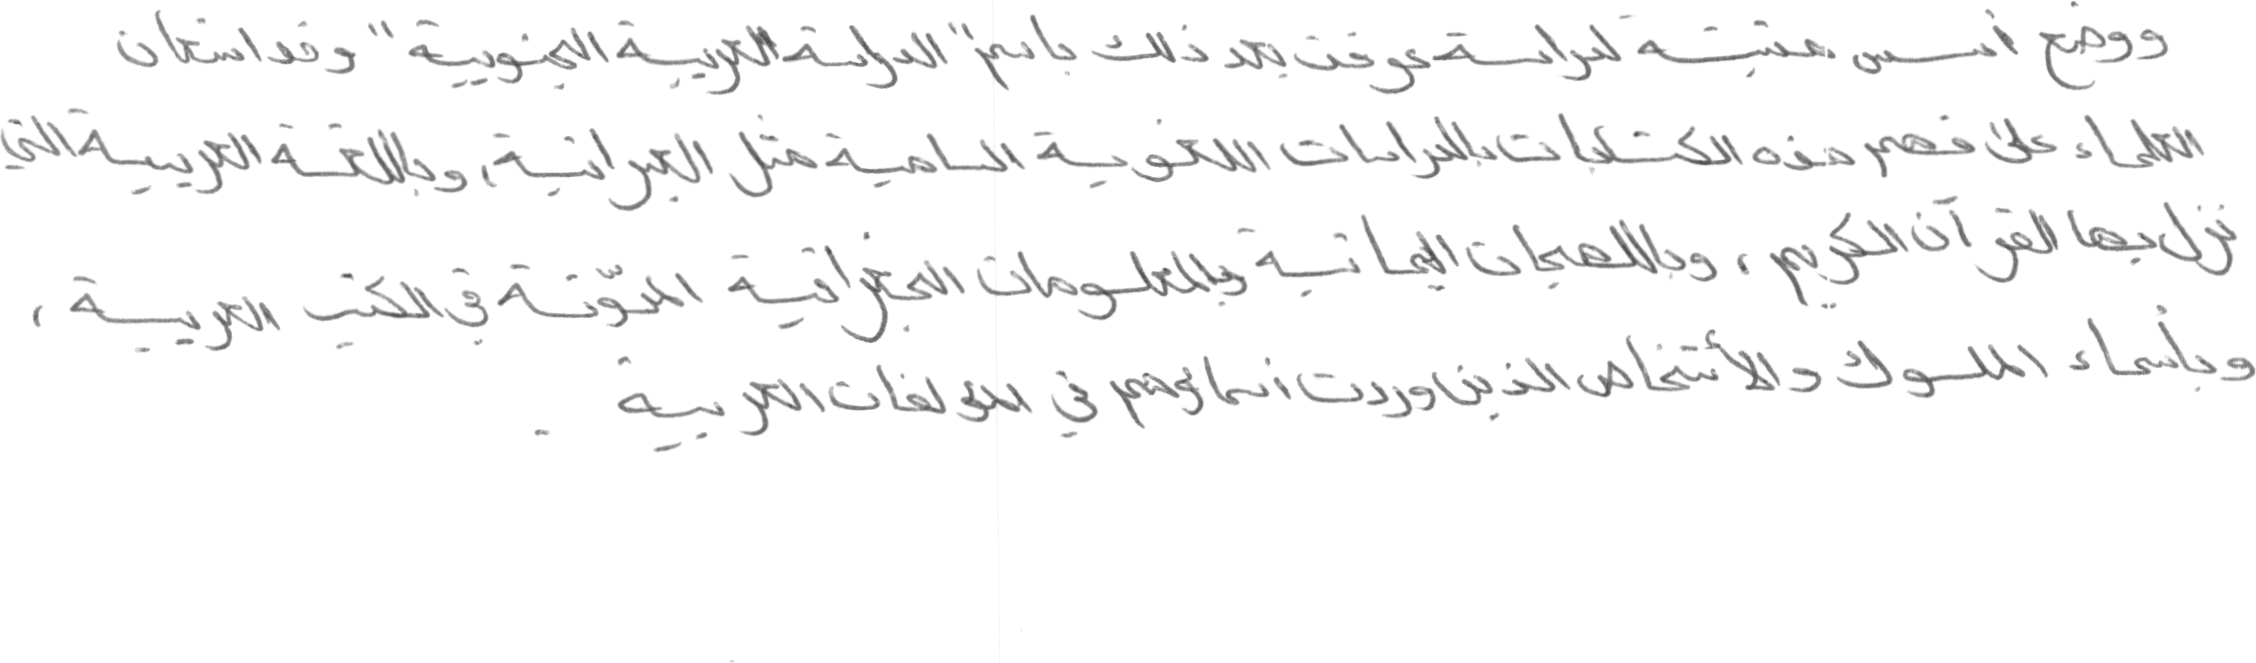 ووضع أسس متينة لدراسة عرفت بعد ذلك باسم "الدراسة العربية الجنوبية" وقد استعان
العلماء على فهم هذه الكتابات بالدراسات اللغوية السامية مثل العبرانية، وباللغة العربية التي
نزل بها القرآن الكريم، وباللهجات اليمانية وبالمعلومات الجغرافية المدوّنة في الكتب العربية،
وبأسماء الملوك والأشخاص الذين وردت أسماؤهم في المؤلفات العربية.